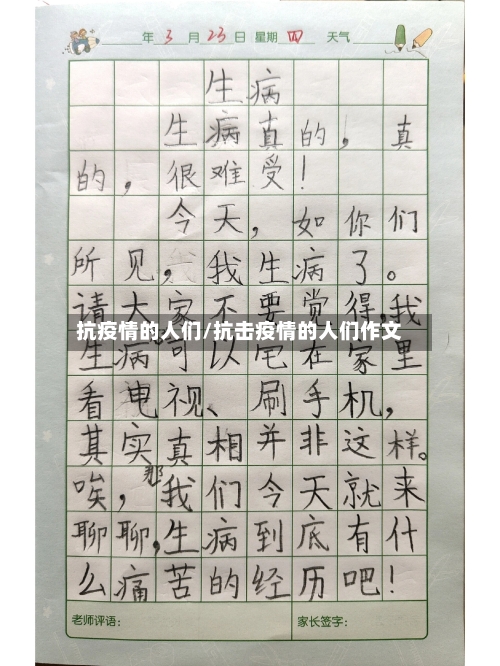 年 3 月 23 日 星期 四 天气
生病
生病真的，真
的，很难受！
今天，如你们
所见，我生病了。
请大家不要觉得，我
抗疫情的人们/抗击疫情的人们作文
生病可以宅在家里
看电视、刷手机，
其实真相并非这样。
唉，那我们今天就来
聊聊，生病到底有什
么痛苦的经历吧！
老师评语： 家长签字：